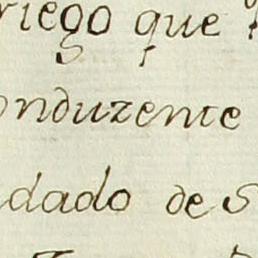 riego que
onduzente
dado de S